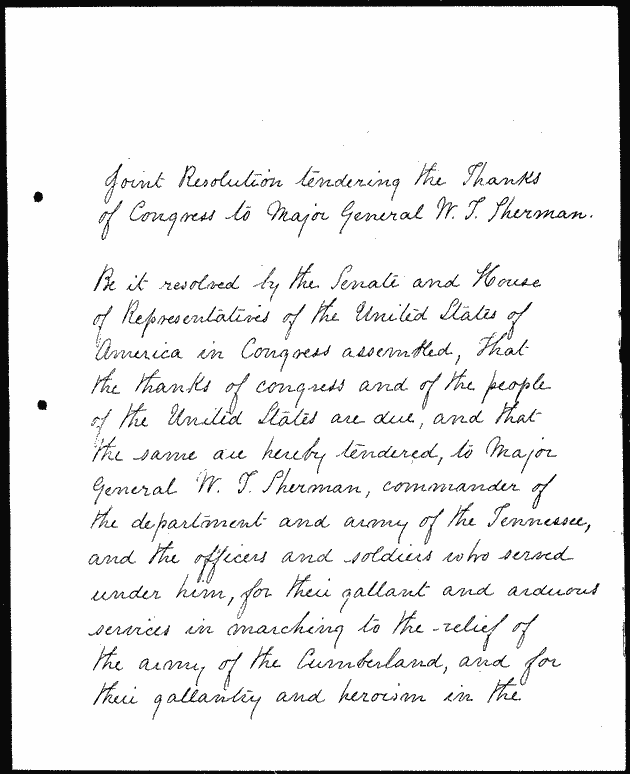 Joint Resolution tendering the Thanks
of Congress to Major General W. T. Sherman.
Be it resolved by the Senate and House
of Representatives of the United States of
America in Congress assembled, That
the thanks of congress and of the people
of the United States are due, and that
the same are hereby tendered, to Major
General W. T. Sherman, commander of
the department and army of the Tennessee,
and the officers and soldiers who served
under him, for their gallant and arduous
services in marching to the relief of
the army of the Cumberland, and for
their gallantry and heroism in the